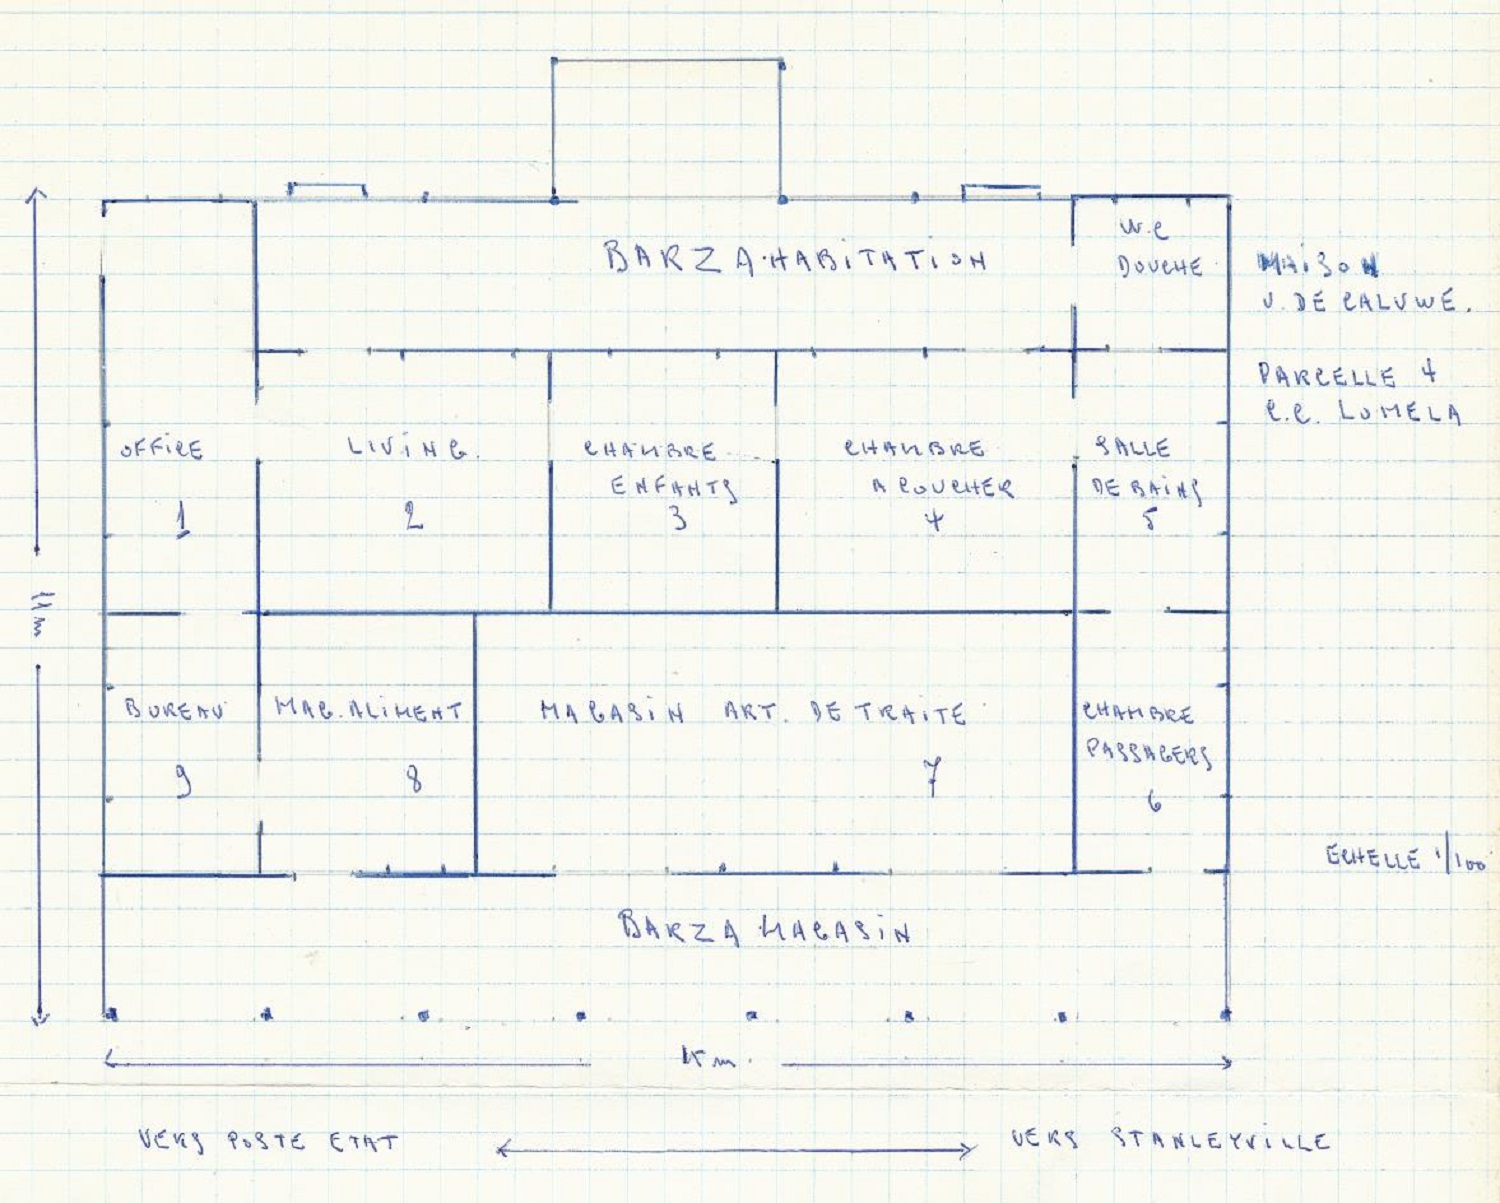 BARZA·HABITATION
W.C
DOUCHE
MAISON
V. DE CALUWE.
PARCELLE 4
C.C. LOMELA
OFFICE
1
LIVING.
2
CHAMBRE
ENFANTS
3
CHAMBRE
A COUCHER
4
SALLE
DE BAINS
5
11 m
BUREAU
9
MAG. ALIMENT
8
MAGASIN ART. DE TRAITE
7
CHAMBRE
PASSAGERS
6
ECHELLE 1/100
BARZA MAGASIN
15 m.
VERS POSTE ETAT
VERS STANLEYVILLE